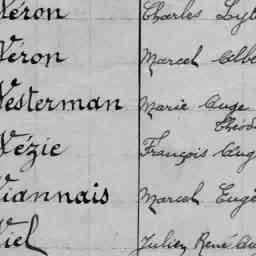 Véron Charles Lyt
Véron Marcel Albe
Vesterman Marie Auge
Théod
Vézie François Aug
Viannais Marcel Eugè
Viel Julien René Au